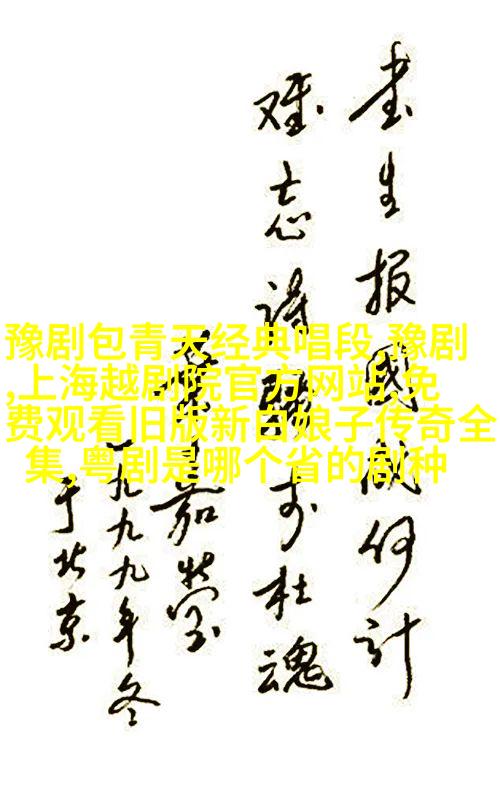 豫剧包青天经典唱段,豫剧
,上海越剧院官方网站,免
费观看旧版新白娘子传奇全
集,粤剧是哪个省的剧种
书生报國成何计
难忘诗骚李杜魂
嘉莹
一九九九年冬
于北京